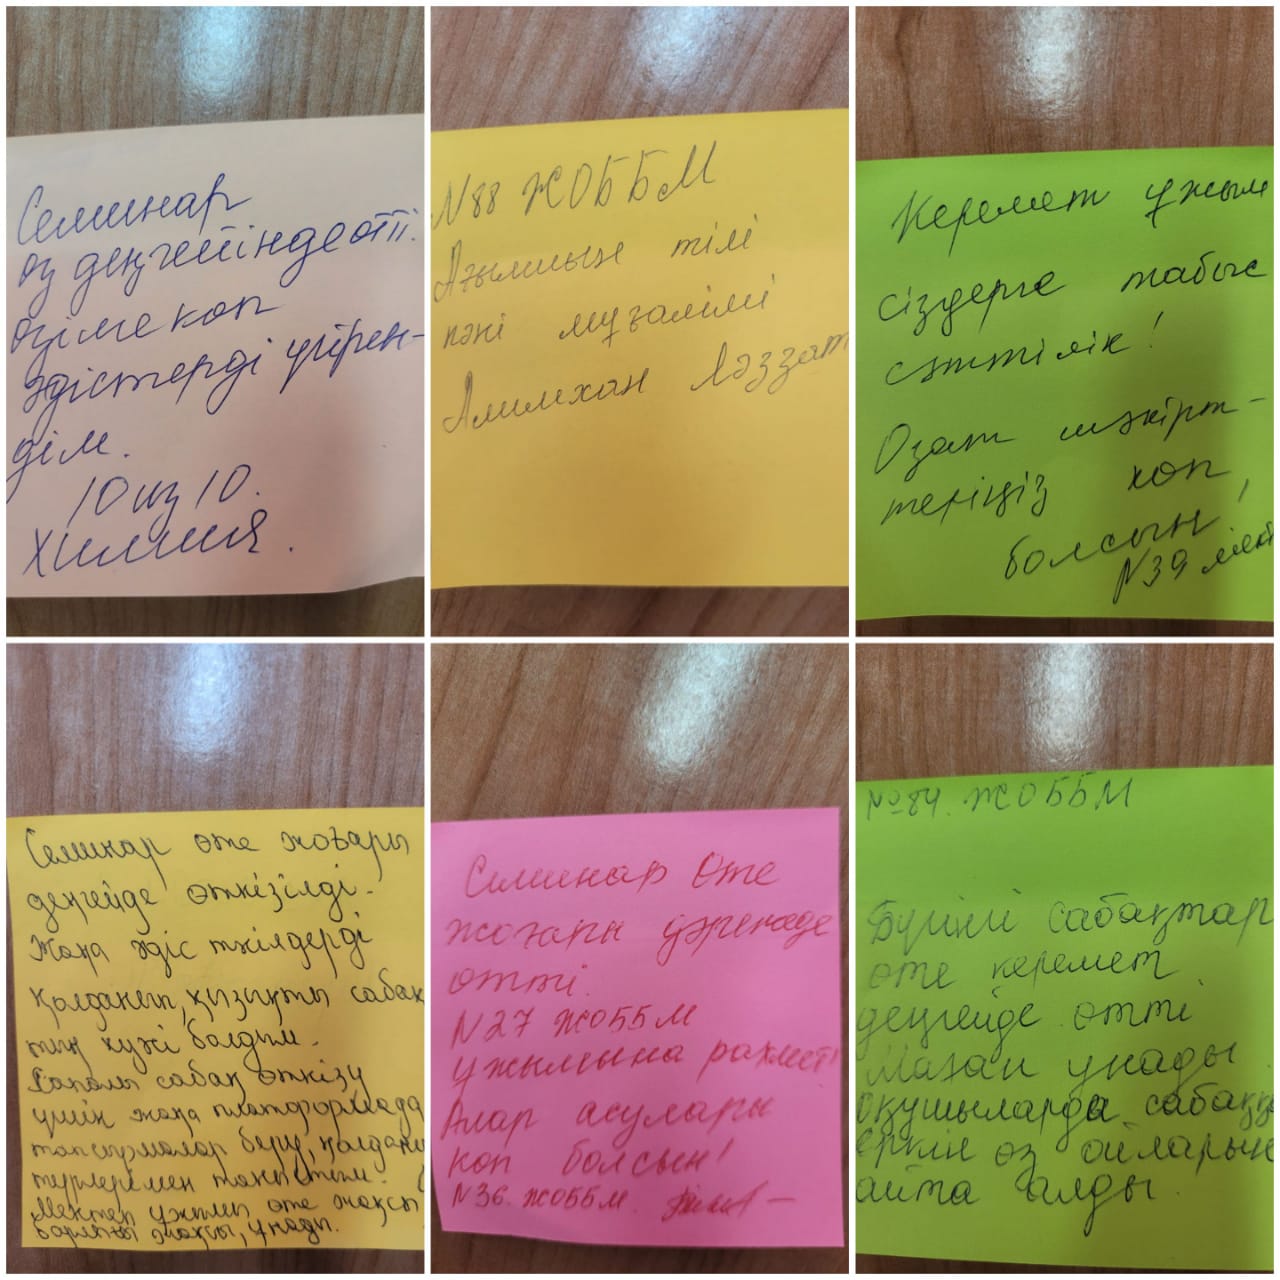 Семинар
өз деңгейінде өтті.
өзіме көп
әдістерді үйрен-
дім.
10 из 10.
Химия.
N88 ЖОББМ
Ағылшын тілі
пәні мұғалімі
Алимхан Ләззат
Керемет ұжым
сіздерге табыс
сәттілік!
Озат шәкірт-
теріңіз көп
болсын!
N39
Семинар өте жоғары
деңгейде өткізілді.
Жаңа әдіс тәсілдерді
қолданып, қызықты сабақ
тың куәсі болдым.
Сапалы сабақ өткізу
үшін жаңа платформада
тапсырмалар беру, қолдану
түрлерімен таныстым.
Мектеп ұжымы өте жақсы
барлығы жақсы, ұнады.
Семинар Өте
жоғары дәрежеде
өтті.
N27 ЖОББМ
ұжымына рахмет!
Алар асулары
көп болсын!
N36. ЖОББМ.
№84. ЖОББМ
Бүгінгі сабақтар
өте керемет
деңгейде өтті
Маған ұнады
оқушыларда сабаққа
еркін өз ойларын
айта алды.